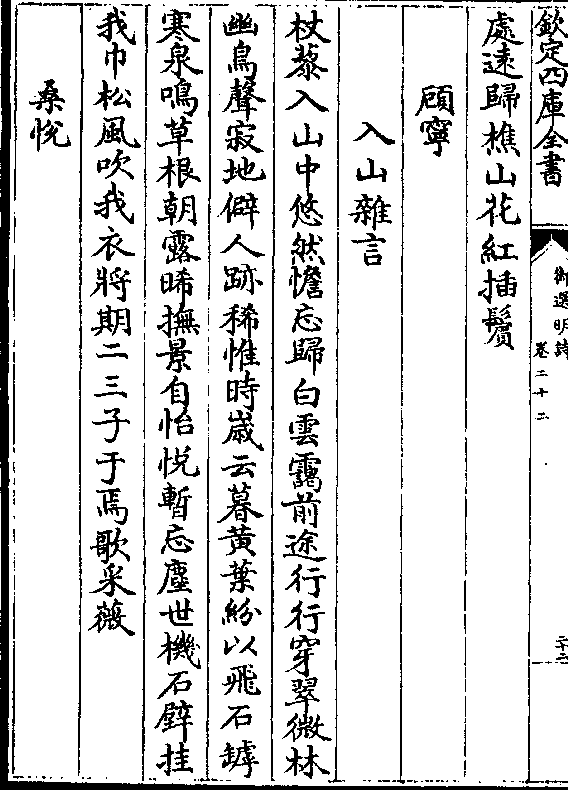 欽定四庫全書
御選明詩 卷二十二
二十六
處遠歸樵山花紅插鬢
顧寧
入山雜言
杖藜入山中悠然憺忘歸白雲靄前途行行穿翠微林
幽鳥聲寂地僻人跡稀惟時嵗云暮黃葉紛以飛石罅
寒泉鳴草根朝露晞撫景自怡悅暫忘塵世機石壁挂
我巾松風吹我衣將期二三子于焉歌采薇
桑悅